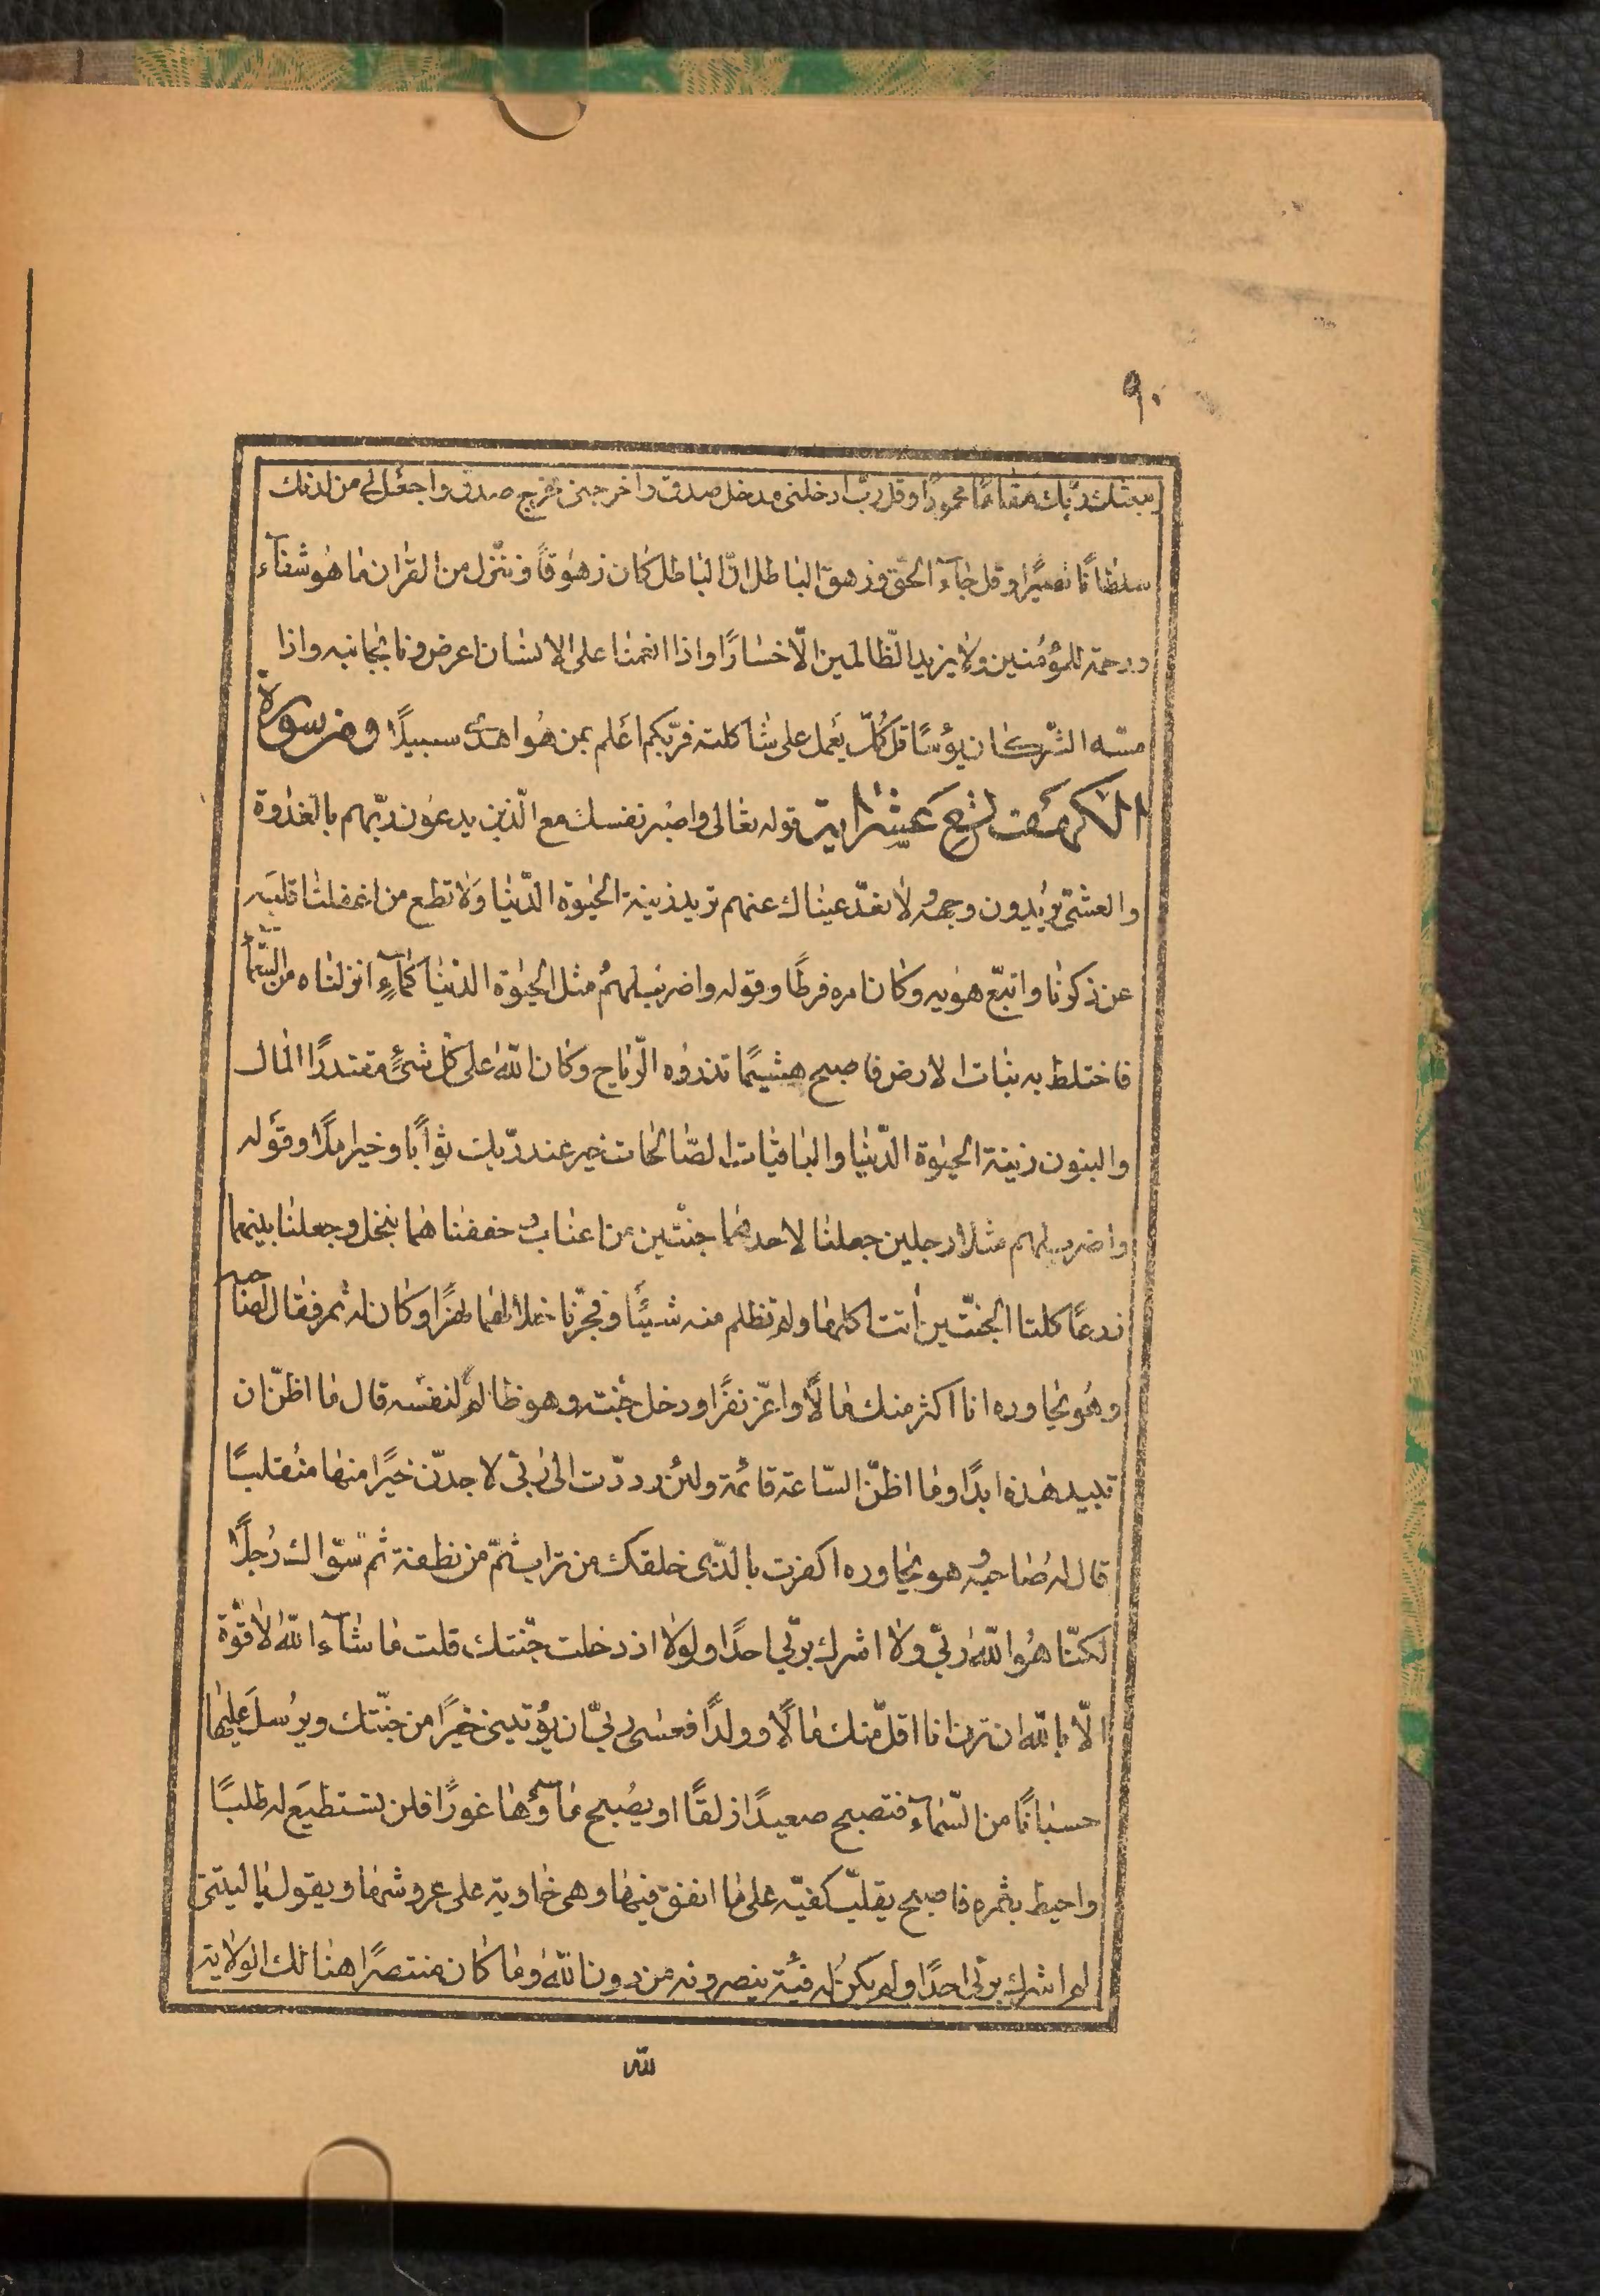 ٩٠
يبعثك ربّك مقامًا محمودًا وقل ربّ ادخلنى مدخل صدق واخرجنى مخرج صدق واجعل لى من لدنك
سلطانًا نصيرًا وقل جآء الحقّ وزهق الباطل انّ الباطل كان زهوقًا وننزّل من القران ما هو شفآء
ورحمة للمؤمنين ولا يزيد الظّالمين الّا خسارًا واذا انعمنا على الانسان اعرض ونا بجانبه واذا
مسّه الشّر كان يؤسًا قل كُلّ يعمل على شاكلته فربّكم اعلم بمن هُوا هدى سبيلًا ومن سورة
الكهف تسع عشر اية قوله تعالى واصبر نفسك مع الّذين يدعون ربّهم بالغدوة
والعشىّ يريدون وجهه لا تعدّ عيناك عنهم تريد زينة الحيوة الدّنيا وَلا تطع من اغفلنا قلبَه
عن ذكرنا واتبّع هويه وكان امره فرطًا وقوله واضرب لهمُ مثل الحيوة الدّنيا كمآءٍ انزلناه من السّمآ
فاختلط به نبات الارض فاصبح هشيمًا تذروه الرّياح وكان اللّه على كل شىءٍ مقتدرًا المال
والبنون زينة الحيوة الدّنيا والباقيات الصّالحات خير عند ربّك ثوابًا وخير املًا وقوله
واضرب لهم مثلا رجلين جعلنا لاحدهما جنّتين من اعناب وحففنا هما بنخل وجعلنا بينهما
زرعًا كلتا الجنّتين أتت اكلها ولم تظلم منه شيئًا وفجّرنا خلالهما نهرًا وكان له ثمر فقال لصاحبه
وهُو يحاوره انا اكثر منك مالًا واعزّ نفرًا ودخل جنّته وهو ظالمٌ لنفسه قال ما اظنّ ان
تبيد هذه ابدًا وما اظنّ السّاعة قائمة ولئن رددّت الى ربّى لاجدنّ خيرًا منها منقلبًا
قال له صاحبه وهو يحاوره اكفرت بالّذى خلقك من تراب ثمّ من نطفة ثم سوّاك رُجلًا
لكنّا هُو اللّه ربّى ولا اشرك بربّى احدًا ولولا اذ دخلت جنّتك قلت ما شآء اللّه لا قوّة
الّا باللّه ان ترن انا اقلّ منك مالًا وولدًا فعسى ربّى ان يؤتينى خيرًا من جنّتك ويرُسلَ عليها
حسبانًا من السّمآء فتصبح صعيدًا زلقًا او يصُبح مآؤها غورًا فلن تستطيعَ له طلبًا
واحيط بثمره فاصبح يقلبّ كفيّه على ما انفق فيها وهى خاوية على عروشها ويقول يا ليتنى
لم اشرك بربّى احدًا ولم يكن له فئة ينصرونه من دون اللّه وما كان منتصرًا هنالك الولاية
للّه